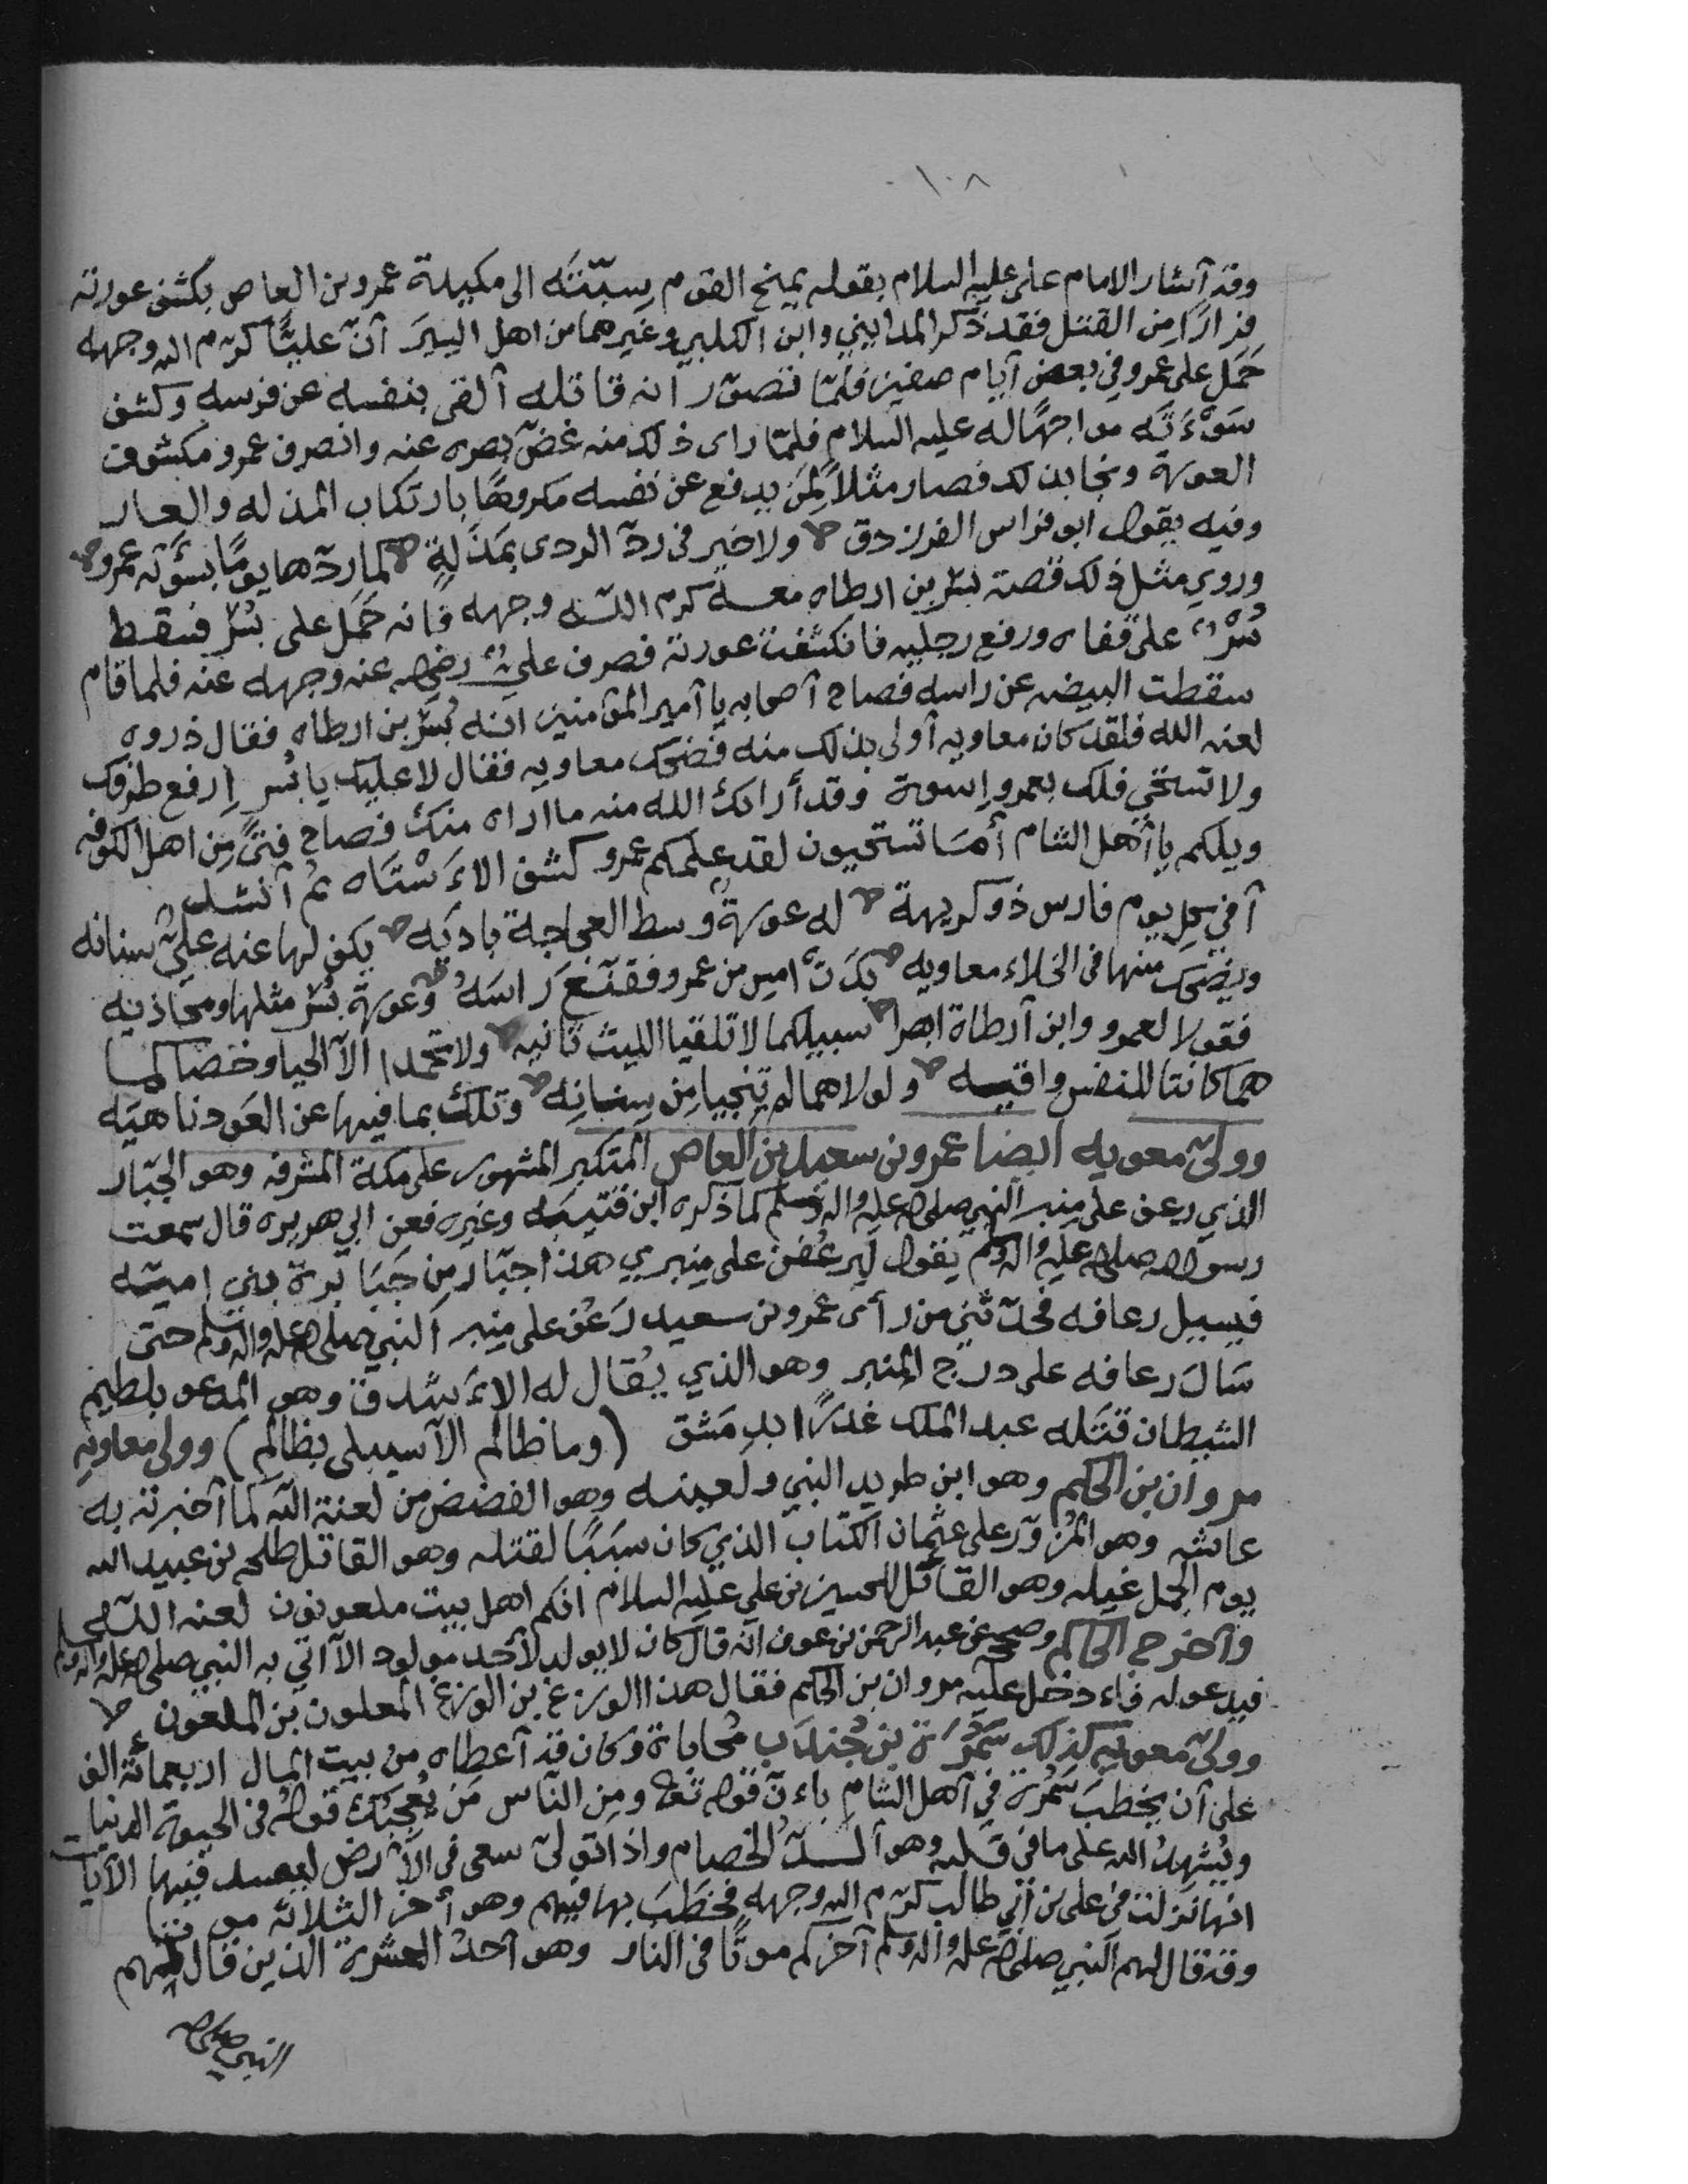 ١٠٨
وقد أشار الامام علي عليه السلام بقوله يمنح القوم سبّتَه الى مكيدة عمرو بن العاص بكشف عورته
فرارًا مِن القتل فقد ذكر المدايني وابن الكلبي وغيرهما من اهل السِيَر أنّ عليًّا كرّم الله وجهه
حَمَل على عمرو في بعض أيام صفين فلمّا تصوّر انه قاتله ألقى بنفسه عن فرسه وكشف
سَوْءَتَه مواجهًا له عليه السلام فلمّا راى ذلك منه غضّ بصره عنه وانصرف عمرو مكشوف
العورة ونجا بذلك فصار مثلاً لمن يدفع عن نفسه مكروهًا بارتكاب المذله والعار
وفيه يقول ابو فراس الفرزدق ولا خير في ردّ الردى بمَذَلةٍ كما ردّها يومًا بسَوْءته عمرو
وروي مثل ذلك قصة بسر بن ارطاه معه كرم الله وجهه فانه حَمَل على بُسْر فسقط
بُسْرٌ على قفاه ورفع رجليه فانكشفت عورته فصرف عليٌّ رضي الله عنه وجهه عنه فلما قام
سقطت البيضه عن راسه فصاح أصحابه يا أمير المؤمنين انه بُسْر بن ارطاه فقال ذروه
لعنه الله فلقد كان معاويه أولى بذلك منه فضحك معاويه فقال لا عليك يا بُسر إرفع طرفك
ولا تستحي فلك بعمرو إسوة وقد أراك الله منه ما اراه منك فصاح فتًى مِن اهل الكوفه
ويلكم يا أهل الشام أمَا تستحيون لقد علمكم عمرو كشف الاَسْتَاه ثم أنشد
أفي كل يوم فارس ذو كريهة له عورةٌ وسط العجاجة باديَه يكف لها عنه عليٌّ سنانه
ويضحك منها في الخلاء معاويه بدَتْ امسِ من عمرو فقنّع رَاسَهُ وعورة بُسْر مثلها ومحاذيه
فقولا لعمرو وابن أرطاة ابصرا سبيلكما لا تلقيا الليث ثانيه ولا تحمدا الاّ الحيا وخصاكما
هما كانتا للنفس واقيه ولولاهما لم تنجيا مِن سِنانِه وتلك بما فيها عن العَود ناهيَه
وولّى معويه ايضا عمرو بن سعيد بن العاص المتكبر المشهور على مكة المشرفه وهو الجبّار
الذي رعف على مِنبر النبي صلى الله عليه واله وسلم كما ذكره ابن قتيبَه وغيره فعن ابي هريره قال سمعت
رسول الله صلى الله عليه واله وسلم يقول ليرعُفنّ على مِنبري هذا جبّار مِن جَبَابرة بني اميّه
فيسيل رعافه فحدّثني من رأى عمرو بن سعيد رَعُف على مِنبر النبي صلى الله عليه واله وسلم حتى
سَالَ رعافه على درج المنبر وهو الذي يُقال له الاَشدق وهو المدعو بلطيم
الشيطان قتَله عبد الملك غدرًا بدِمَشق (وما ظالم الاّ سيبلى بظالم) وولى معاويه
مروان بن الحكم وهو ابن طريد النبي ولعينه وهو الفضض من لعنة الله كما أخبرت به
عائشه وهو المُزوّر على عثمان الكتاب الذي كان سَبَبًا لقتله وهو القاتل طلحه بن عبيد الله
يوم الجمل غيله وهو القائل للحسين بن علي عليه السلام انكم اهل بيت ملعونون لعنه الله
وأخرج الحاكم وصححه عن عبد الرحمن بن عوف انّه قال كان لا يولد لأحد مولود الاّ أتي به النبي صلى الله عليه واله وسلم
فيدعو له فادخل عليه مروان بن الحكم فقال هذا الوزغ بن الوزغ الملعون بن الملعون
وولّى معويه كذلك سَمُرَة بن جُندَب مُحاباة وكان قد أعطاه من بيت المال اربعمائة الف
على أن يخطبَ سَمُرة في أهل الشام باءنّ قوله تعالى ومِن النّاس مَن يُعجبُكَ قولهُ في الحيوة الدنيا
ويُشهِدُ الله على ما في قلبه وهو ألدُّ الخصام واذا تولّى سعى في الأرض ليفسد فيها الآيات
انها نزلت في علي بن أبي طالب كرّم الله وجهه فخطَبَ بها فيهم وهو أخر الثلاثة موتا
وقد قال لهم النبي صلى الله عليه واله وسلم آخركم موتًا في النار وهو أحدُ العشرة الذين قال لهم
النبي صلى الله